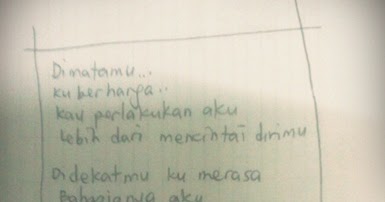 Dimatamu...
ku berharga..
kau perlakukan aku
lebih dari mencintai dirimu
Didekatmu ku merasa
Bahagianya aku